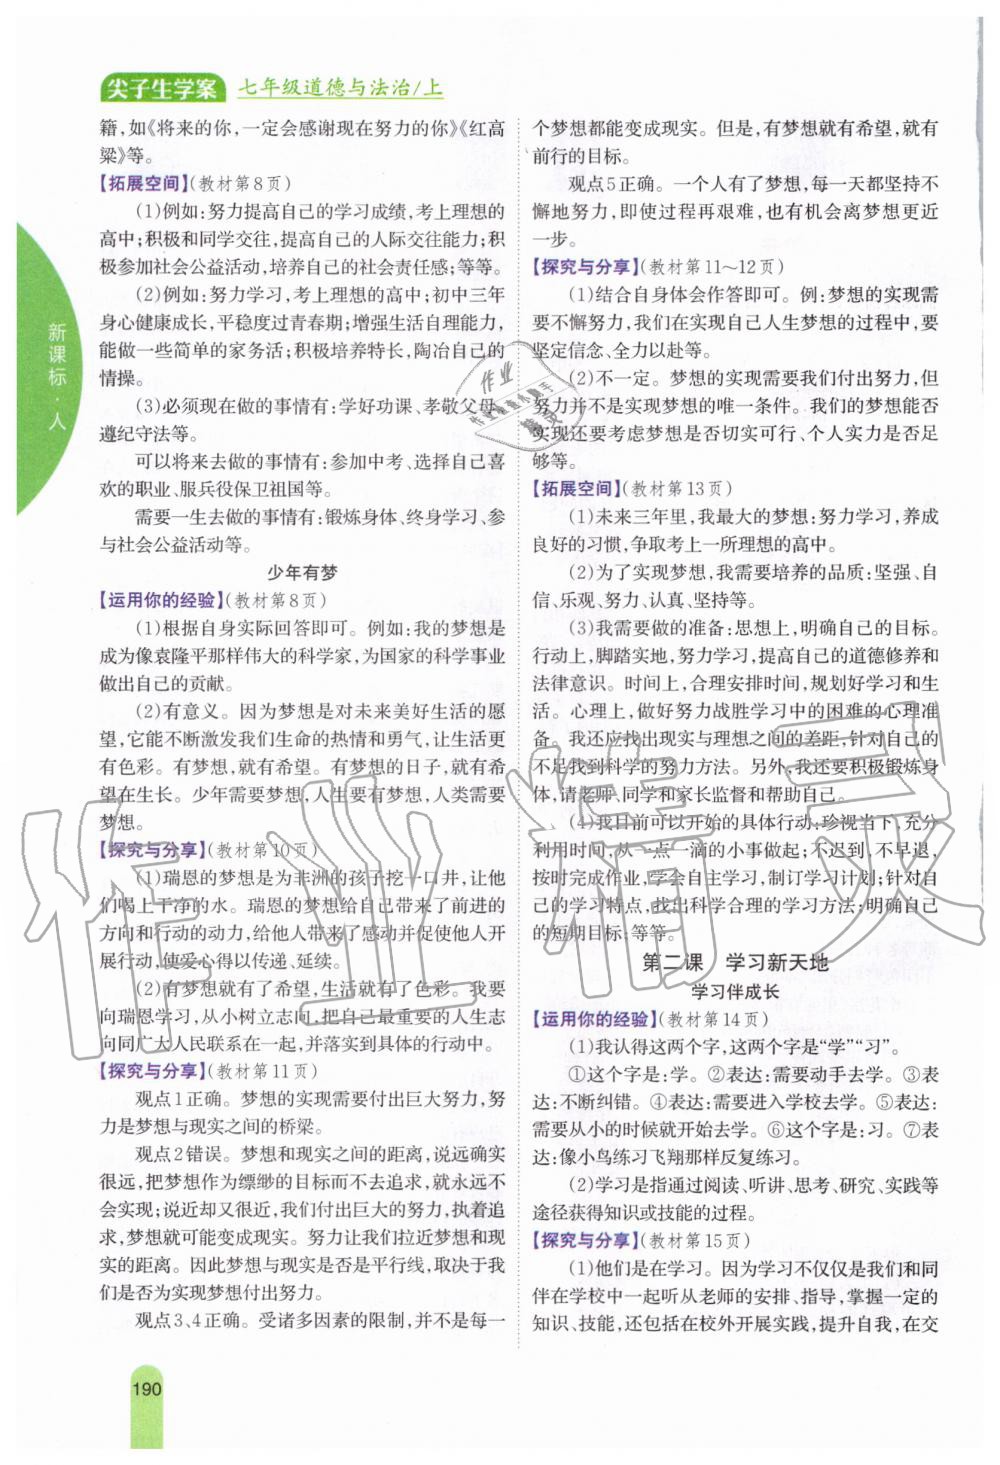 尖子生学案 七年级道德与法治/上
新课标·人
籍,如《将来的你,一定会感谢现在努力的你》《红高
粱》等。
【拓展空间】(教材第8页)
(1)例如:努力提高自己的学习成绩,考上理想的
高中;积极和同学交往,提高自己的人际交往能力;积
极参加社会公益活动,培养自己的社会责任感;等等。
(2)例如:努力学习,考上理想的高中;初中三年
身心健康成长,平稳度过青春期;增强生活自理能力,
能做一些简单的家务活;积极培养特长,陶冶自己的
情操。
(3)必须现在做的事情有:学好功课、孝敬父母、
遵纪守法等。
可以将来去做的事情有:参加中考、选择自己喜
欢的职业、服兵役保卫祖国等。
需要一生去做的事情有:锻炼身体、终身学习、参
与社会公益活动等。
少年有梦
【运用你的经验】(教材第8页)
(1)根据自身实际回答即可。例如:我的梦想是
成为像袁隆平那样伟大的科学家,为国家的科学事业
做出自己的贡献。
(2)有意义。因为梦想是对未来美好生活的愿
望,它能不断激发我们生命的热情和勇气,让生活更
有色彩。有梦想,就有希望。有梦想的日子,就有希
望在生长。少年需要梦想,人生要有梦想,人类需要
梦想。
【探究与分享】(教材第10页)
(1)瑞恩的梦想是为非洲的孩子挖一口井,让他
们喝上干净的水。瑞恩的梦想给自己带来了前进的
方向和行动的动力,给他人带来了感动并促使他人开
展行动,使爱心得以传递、延续。
(2)有梦想就有了希望,生活就有了色彩。我要
向瑞恩学习,从小树立志向,把自己最重要的人生志
向同广大人民联系在一起,并落实到具体的行动中。
【探究与分享】(教材第11页)
观点1正确。梦想的实现需要付出巨大努力,努
力是梦想与现实之间的桥梁。
观点2错误。梦想和现实之间的距离,说远确实
很远,把梦想作为缥缈的目标而不去追求,就永远不
会实现;说近却又很近,我们付出巨大的努力,执着追
求,梦想就可能变成现实。努力让我们拉近梦想和现
实的距离。因此梦想与现实是否是平行线,取决于我
们是否为实现梦想付出努力。
观点3、4正确。受诸多因素的限制,并不是每一
190
个梦想都能变成现实。但是,有梦想就有希望,就有
前行的目标。
观点5正确。一个人有了梦想,每一天都坚持不
懈地努力,即使过程再艰难,也有机会离梦想更近
一步。
【探究与分享】(教材第11~12页)
(1)结合自身体会作答即可。例:梦想的实现需
要不懈努力,我们在实现自己人生梦想的过程中,要
坚定信念、全力以赴等。
(2)不一定。梦想的实现需要我们付出努力,但
努力并不是实现梦想的唯一条件。我们的梦想能否
实现还要考虑梦想是否切实可行、个人实力是否足
够等。
【拓展空间】(教材第13页)
(1)未来三年里,我最大的梦想:努力学习,养成
良好的习惯,争取考上一所理想的高中。
(2)为了实现梦想,我需要培养的品质:坚强、自
信、乐观、努力、认真、坚持等。
(3)我需要做的准备:思想上,明确自己的目标。
行动上,脚踏实地,努力学习,提高自己的道德修养和
法律意识。时间上,合理安排时间,规划好学习和生
活。心理上,做好努力战胜学习中的困难的心理准
备。我还应找出现实与理想之间的差距,针对自己的
不足找到科学的努力方法。另外,我还要积极锻炼身
体,请老师、同学和家长监督和帮助自己。
(4)我目前可以开始的具体行动:珍视当下,充分
利用时间,从一点一滴的小事做起;不迟到,不早退,
按时完成作业,学会自主学习,制订学习计划;针对自
己的学习特点,找出科学合理的学习方法;明确自己
的短期目标;等等。
第二课 学习新天地
学习伴成长
【运用你的经验】(教材第14页)
(1)我认得这两个字,这两个字是“学”“习”。
①这个字是:学。②表达:需要动手去学。③表
达:不断纠错。④表达:需要进入学校去学。⑤表达:
需要从小的时候就开始去学。⑥这个字是:习。⑦表
达:像小鸟练习飞翔那样反复练习。
(2)学习是指通过阅读、听讲、思考、研究、实践等
途径获得知识或技能的过程。
【探究与分享】(教材第15页)
(1)他们是在学习。因为学习不仅仅是我们和同
伴在学校中一起听从老师的安排、指导,掌握一定的
知识、技能,还包括在校外开展实践,提升自我,在交
作业精灵